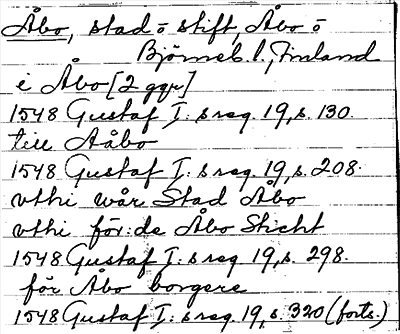 Åbo, stad o stift, Åbo o
Björneb. l., Finland
i Åbo [2 ggr]
1548 Gustaf I:s reg. 19, s. 130.
till Aåbo
1548 Gustaf I:s reg. 19, s. 208.
vthi wår Stad Åbo
vthi för:de Åbo Sticht
1548 Gustaf I:s reg 19, s. 298.
för Åbo borgere
1548 Gustaf I:s reg. 19, s. 320 (forts.)